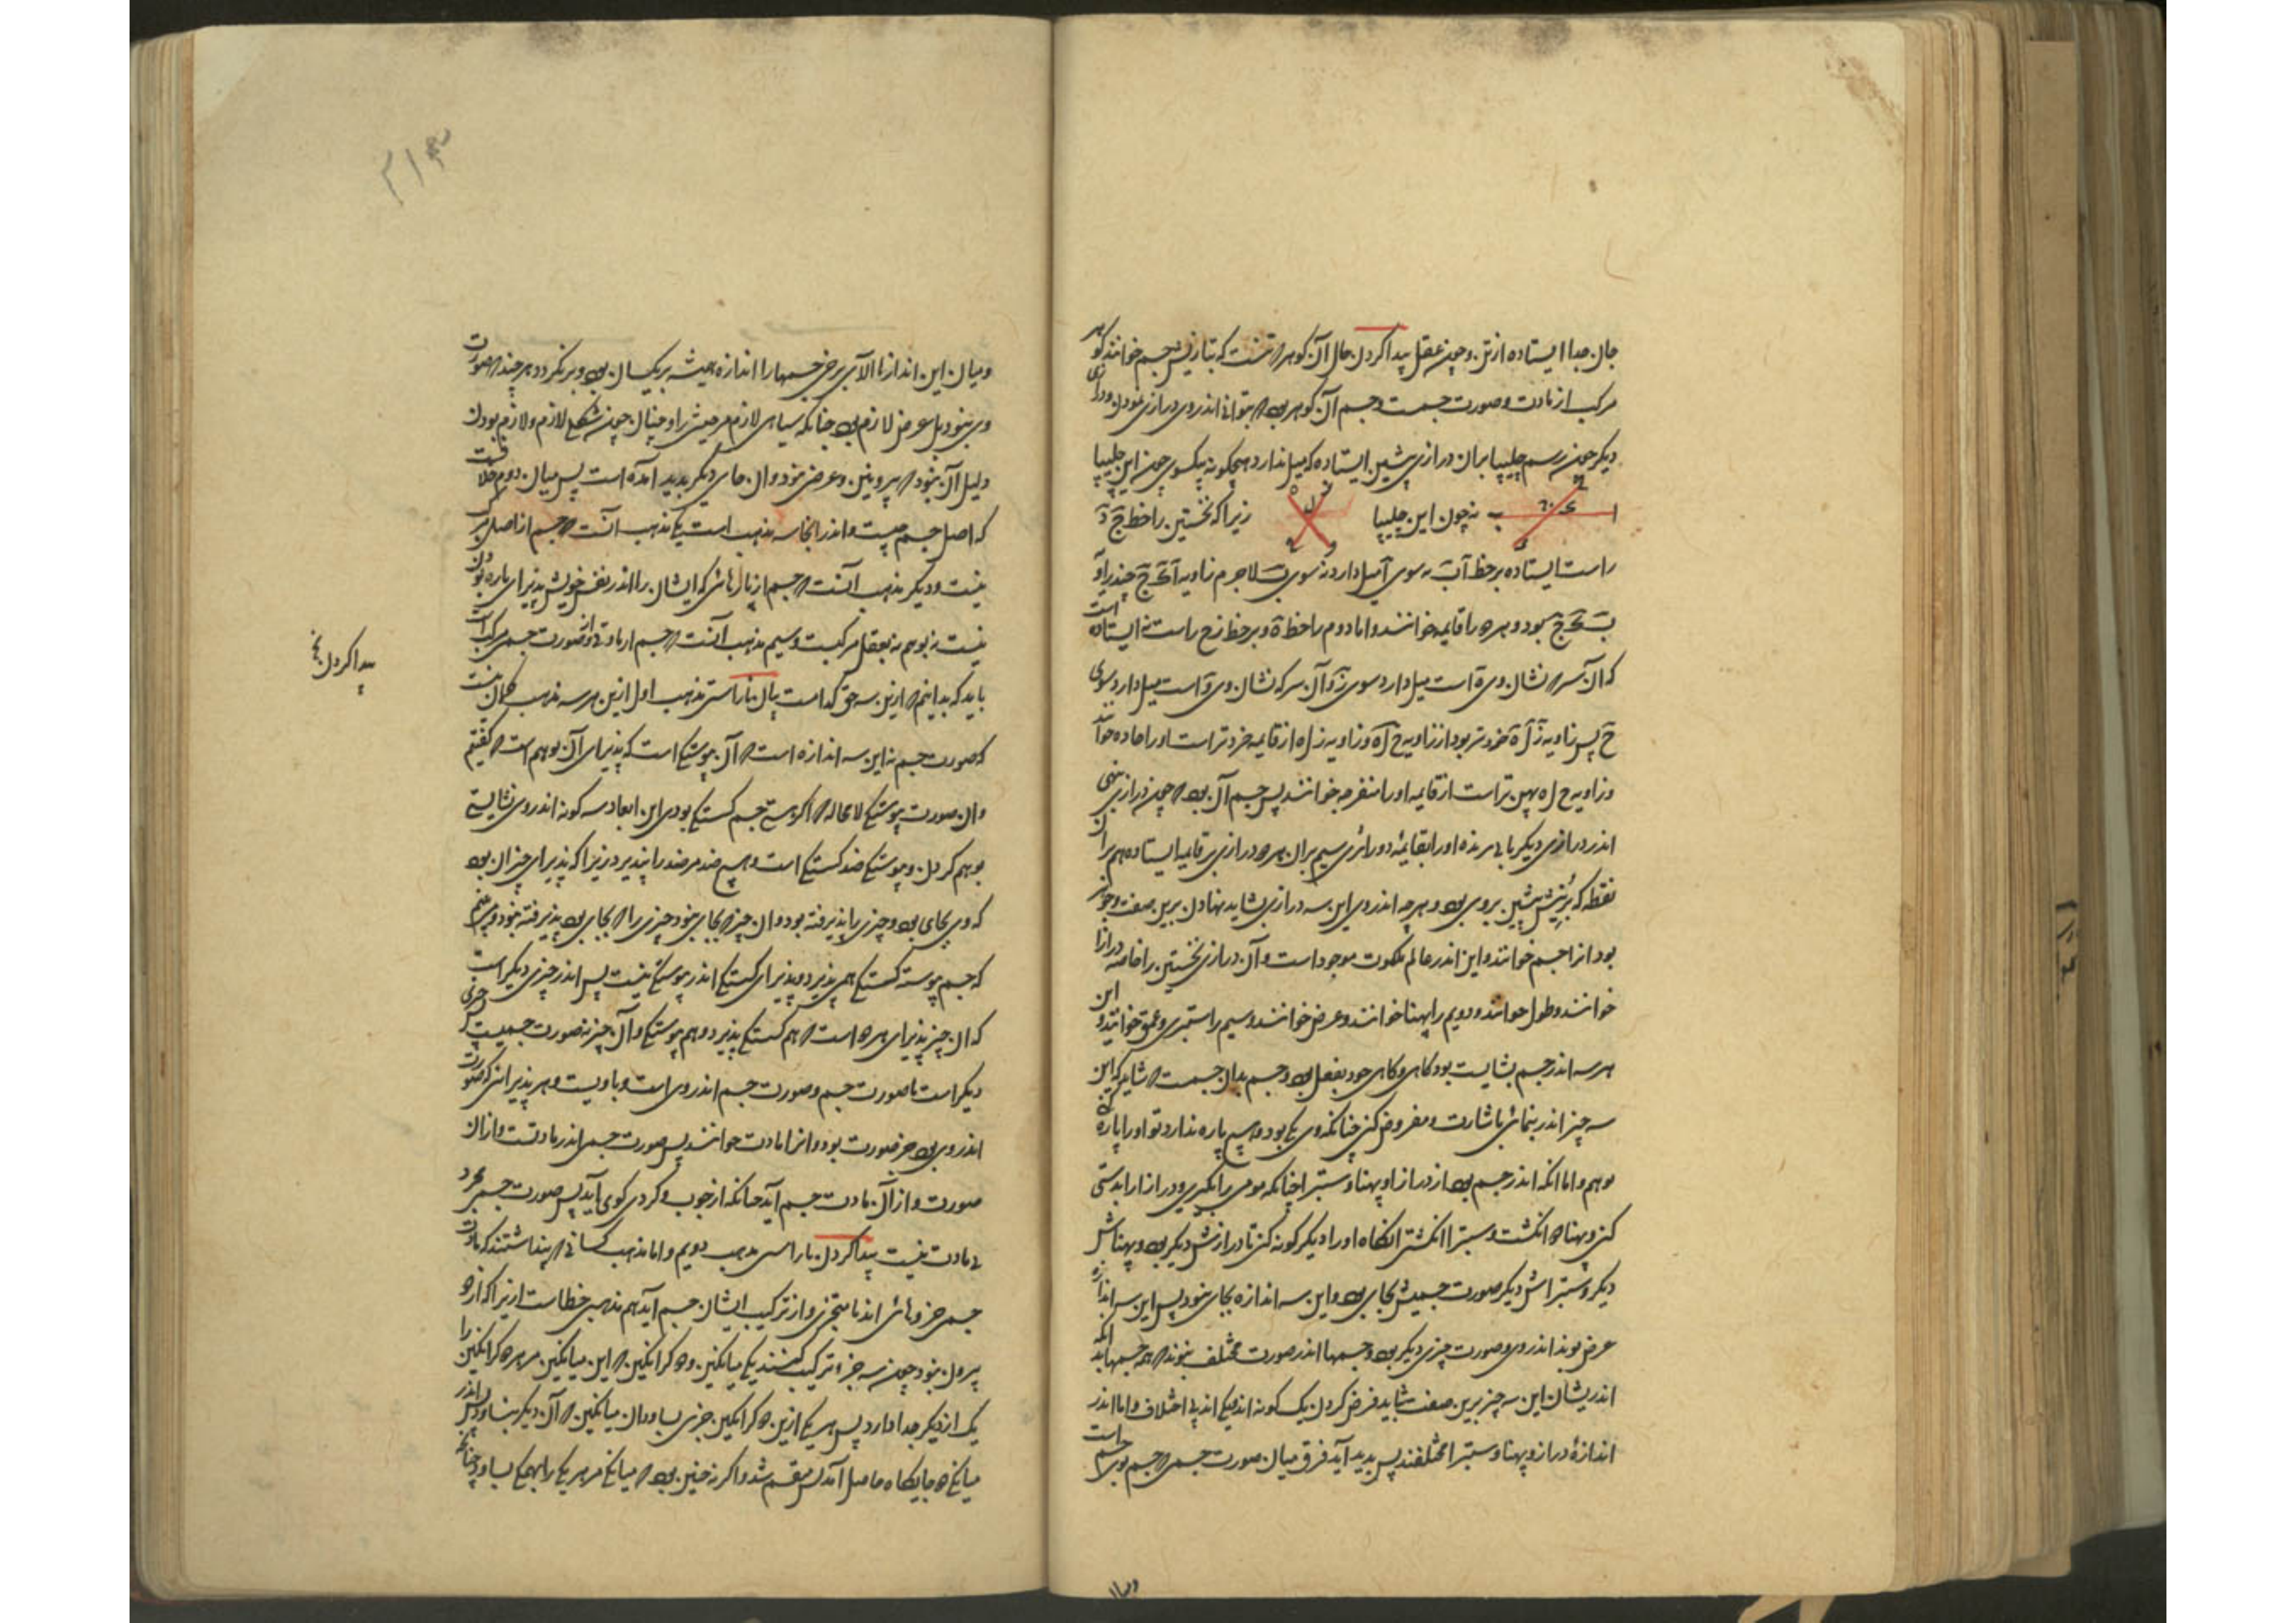 جان جدا ایستاده از تن و چون عقل پیدا کردن حال آن گوهر که تنست که بتازیش جسم خوانند گوهر
مرکب از مادت و صورت جسمست و جسم آن گوهر بود که بتوانی اندر وی درازی نمودن و درازی
دیگر چون رسم چلیپا بران درازی پیشین ایستاده که میل ندارد هیچگونه بیکسوی چون این چلیپا
ا ب نه چون این چلیپا زیرا که نخستین را خط ج د
راست ایستاده بر خط اب نه سوی ا میل دارد نه سوی ب لاجرم زاویه
بود و هر دو را قایمه خوانند و اما دوم را خط ه و بر خط ز ح راست نه ایستاده است
که آن سر که نشان وی ه است میل دارد سوی ز و آن سر که نشان وی و است میل دارد سوی
ح پس زاویه ز ل ه خردتر بود از زاویه ح ل ه و زاویه ز ل ه از قایمه خردتر است او را حاده خوانند
و زاویه ح ل ه مهین تر است از قایمه او را منفرجه خوانند پس جسم آن بود که چون درازی بنهی
اندر درازی دیگر یابی برنده او را بقایمه و درازی سیم بران هر دو درازی بر قایمه ایستاده هم بر آن
نقطه که برینش پیشین بر وی بود و هر چه اندر وی این سه درازی بشاید نهادن برین صفت و جوهر
بود آنرا جسم خوانند و این اندر عالم ملکوت موجود است و آن درازی نخستین را خاصه درازا
خوانند و طول خوانند و دویم را پهنا خوانند و عرض خوانند و سیم را ستبری و عمق خوانند و این
هر سه اندر جسم بشایست بود گاهی و گاهی خود بفعل بود و جسم بدان جسمست که شاید که این
سه چیز اندر بنمائی باشارت و مفروض کنی چنانکه وی یکی بود و هیچ پاره ندارد تو او را پاره کنی
بوهم و اما آنکه اندر جسم بود از درازا و پهنا و ستبرا چنانکه مومی را بگیری و درازا را بدستی
کنی و پهنا دو انگشت و ستبرا انگشتی آنگاه او را دیگر گونه کنی تا درازاش دیگر بود و پهناش
دیگر و ستبراش دیگر صورت جسمیش بجای بود و این سه اندازه بجای نبود پس این سه اندازه
عرض بوند اندر وی و صورت چیزی دیگر بود و جسمها اندر صورت مختلف نبوند که همه جسمها بدانکه
اندر یشان این سه چیز برین صفت شاید فرض کردن یک گونه اند یکی اند بی اختلاف و اما اندر
اندازهٔ درازا و پهنا و ستبرا مختلفند پس پدید آید فرق میان صورت جسمی که جسم بوی جسم است
ومیان
۲۱۳
و میان این اندازها الا آن برخی جسمها را اندازه همیشه بر یکسان بود و برنگردد هر چند که صورت
وی نبود بل عرض لازم بود چنانکه سیاهی لازم مر حبشی را و چنان چون شکلی لازم و لازم بودن
دلیل آن نبود که بیرونین و عرض نبود و آن جای دیگر پدید آمده است پس میان دوم
که اصل جسم چیست و اندر اینجا سه مذهب است یکی مذهب آنست که جسم از اصل مرکب
نیست و دیگر مذهب آنست که جسم از پارهائی که ایشان را اندر نفس خویش پذیرای پاره بودن
نیست نه بوهم نه بعقل مرکبست و سیم مذهب آنست که جسم از مادتی و از صورت جسمی مرکب است
باید که بدانیم که ازین سه حق کدامست پیدا کردن ناراستی مذهب اول ازین هر سه مذهب
که صورت جسم نه این سه اندازه است که آن پیوستگی است که پذیرای آن بوهم است که گفتیم
و آن صورت پیوستگی لا محاله که اگر هستی جسم گسستگی بودی این ابعاد سه گونه اندر وی نشایستی
بوهم کردن و پیوستگی ضد گسستگی است و هیچ ضد مر ضد را نپذیرد زیرا که پذیرای چیز آن بود
که وی بجای بود و چیزی را پذیرفته بود و آن چیز که بجای نبود چیزی را که بجای بود پذیرفته نبود و می بینیم
که جسم پیوسته گسستگی همی پذیرد و پذیرای گسستگی اندر پیوستگی نیست پس اندر چیزی دیگر است
که آن چیز پذیرای هر دو است که هم گسستگی پذیرد و هم پیوستگی و آن چیز نه صورت جسمیست چیزی
دیگر است با صورت جسم و صورت جسم اندر وی است و با ویست و هر پذیرائی که صورت
اندر وی بود جز صورت بود و آنرا مادت خوانند پس صورت جسمی اندر مادتست و از آن
صورت و از آن مادت جسم آید چنانکه از چوب و گردی گوی آید پس صورت جسمی مجرد
بی مادت نیست پیدا کردن ناراستی مذهب دویم و اما مذهب کسانی که پنداشتند که مادت
جسمی جزوهائی اند نا متجزی و از ترکیب ایشان جسم آید هم مذهبی خطاست ازیرا که از دو
بیرون نبود چون سه جزء ترکیب کنند یکی میانگین و دو کرانگین که این میانگین مر هر دو کرانگین را
یک از دیگر جدا دارد پس هر یکی ازین دو کرانگین جزی بساود از میانگین که آن دیگر بنساود پس اندر
میانگی دو جایگاه حاصل آمد پس منقسم شد و اگر نه چنین بود که میانگی مر هر یکی را بهمگی بساود چنانکه
پیدا کردن